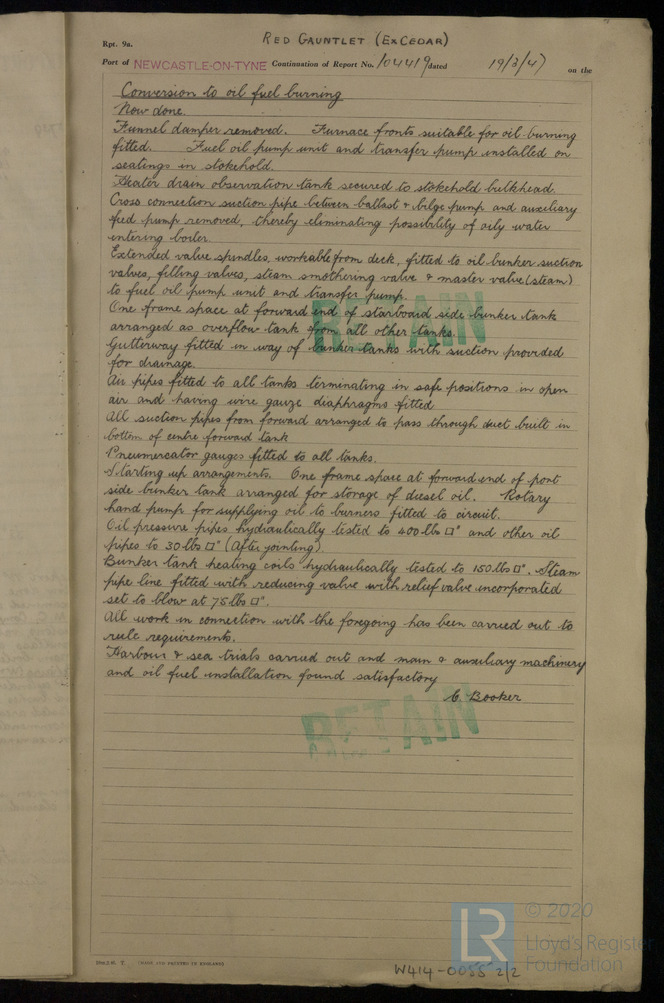 RED GAUNTLET (EX CEDAR)
Rpt. 9a.
Port of NEWCASTLE-ON-TYNE Continuation of Report No. 104419 dated 19/3/47 on the
Conversion to oil fuel burning
Now done.
Funnel damper removed. Furnace fronts suitable for oil burning
fitted. Fuel oil pump unit and transfer pump installed on
seatings in stokehold.
Heater drain observation tank secured to stokehold bulkhead.
Cross connection suction pipe between ballast & bilge pump and auxiliary
feed pump removed, thereby eliminating possibility of oily water
entering boiler.
Extended valve spindles, workable from deck, fitted to oil bunker suction
valves, filling valves, steam smothering valve & master valve (steam)
to fuel oil pump unit and transfer pump.
One frame space at forward end of starboard side bunker tank
arranged as overflow tank from all other tanks.
RETAIN
Gutterway fitted in way of bunker tanks with suction provided
for drainage.
Air pipes fitted to all tanks terminating in safe positions in open
air and having wire gauze diaphragms fitted
All suction pipes from forward arranged to pass through duct built in
bottom of centre forward tank
Pneumercator gauges fitted to all tanks.
Starting up arrangements. One frame space at forward end of port
side bunker tank arranged for storage of diesel oil. Rotary
hand pump for supplying oil to burners fitted to circuit.
Oil pressure pipes hydraulically tested to 400 lbs □" and other oil
pipes to 30 lbs □" (After jointing).
Bunker tank heating coils hydraulically tested to 150 lbs □". Steam
pipe line fitted with reducing valve with relief valve incorporated
set to blow at 75 lbs □".
All work in connection with the foregoing has been carried out to
rule requirements.
Harbour & sea trials carried out and main & auxiliary machinery
and oil fuel installation found satisfactory
C. Booker
RETAIN
© 2020
LR
Lloyd's Register
Foundation
(MADE AND PRINTED IN ENGLAND)
W414-0055 2/2